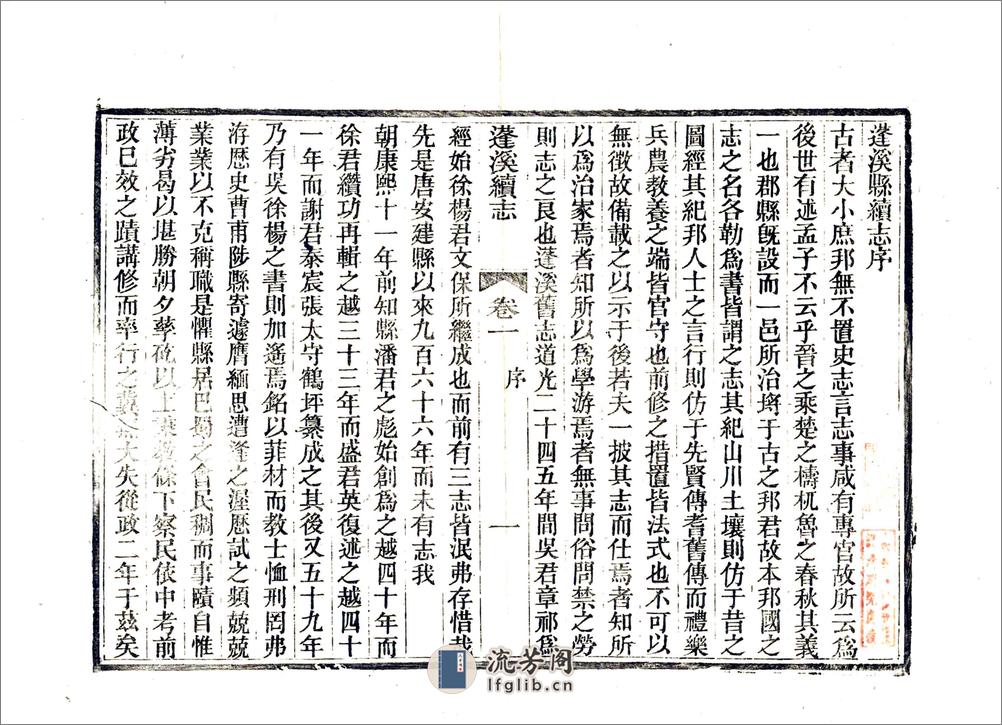 蓬溪縣續志序
古者大小庶邦無不置史志言志事咸有專官故所云爲
後世有述孟子不云乎晉之乘楚之檮杌魯之春秋其義
一也郡縣旣設而一邑所治埒于古之邦君故本邦國之
志之名各勒爲書皆謂之志其紀山川土壤則仿于昔之
圖經其紀邦人士之言行則仿于先賢傳耆舊傳而禮樂
兵農敎養之端皆官守也前修之措置皆法式也不可以
無徵故備載之以示于後若夫一披其志而仕焉者知所
以爲治家焉者知所以爲學游焉者無事問俗問禁之勞
則志之良也蓬溪舊志道光二十四五年間吳君章祁爲
蓬溪續志 卷一 序 一
經始徐楊君文保所繼成也而前有三志皆泯弗存惜哉
先是唐安建縣以來九百六十六年而未有志我
朝康熙十一年前知縣潘君之彪始創爲之越四十年而
徐君纘功再輯之越三十三年而盛君英復述之越四十
一年而謝君泰宸張太守鶴坪纂成之其後又五十九年
乃有吳徐楊之書則加遙焉銘以菲材而敎士恤刑罔弗
游歷史曹甫陟縣寄遽膺緬思遭逢之渥歷試之頻兢兢
業業以不克稱職是懼縣居巴蜀之會民稠而事賾自惟
薄劣曷以堪勝朝夕孳孳以上 條下察民依中考前
政已效之蹟講修而率行之 大失從政二年于茲矣
流芳阁
lfglib.cn